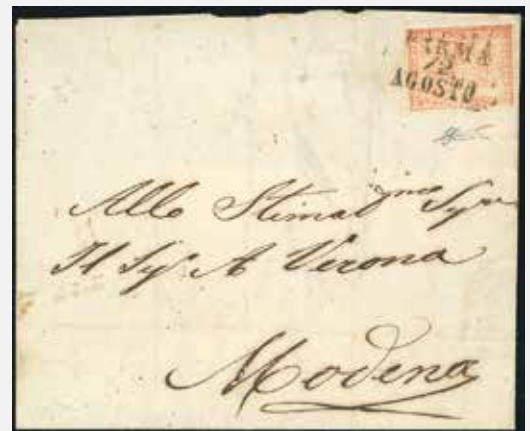 PARMA
12
AGOSTO
Allo Stimat.mo Sigre
Il Sigr A Verona
Modena